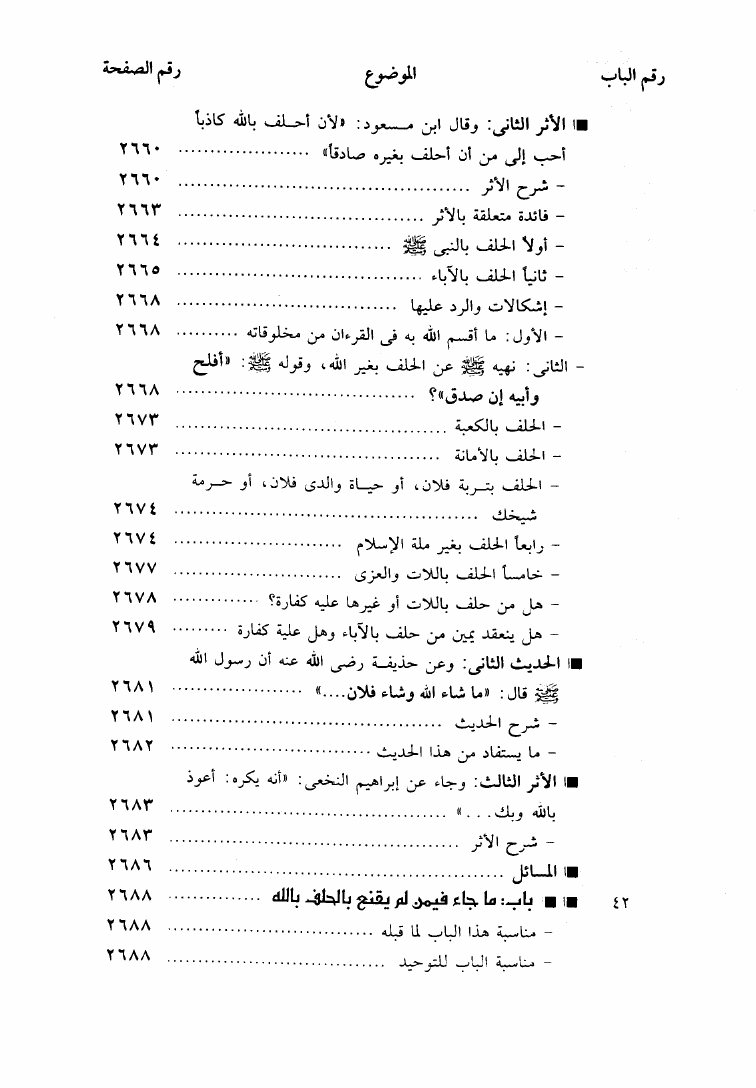 رقم الباب الموضوع رقم الصفحة
■ الأثر الثانى: وقال ابن مسعود: «لأن أحلف بالله كاذباً
أحب إلى من أن أحلف بغيره صادقاً» .................... ٢٦٦٠
- شرح الأثر .................... ٢٦٦٠
- فائدة متعلقة بالأثر .................... ٢٦٦٣
- أولاً الحلف بالنبى ﷺ .................... ٢٦٦٤
- ثانياً الحلف بالآباء .................... ٢٦٦٥
- إشكالات والرد عليها .................... ٢٦٦٨
- الأول: ما أقسم الله به فى القرءان من مخلوقاته .......... ٢٦٦٨
- الثانى: نهيه ﷺ عن الحلف بغير الله، وقوله ﷺ: «أفلح
وأبيه إن صدق»؟ .................... ٢٦٦٨
- الحلف بالكعبة .................... ٢٦٧٣
- الحلف بالأمانة .................... ٢٦٧٣
- الحلف بتربة فلان، أو حياة والدى فلان، أو حرمة
شيخك .................... ٢٦٧٤
- رابعاً الحلف بغير ملة الإسلام .................... ٢٦٧٤
- خامساً الحلف باللات والعزى .................... ٢٦٧٧
- هل من حلف باللات أو غيرها عليه كفارة؟ ............. ٢٦٧٨
- هل ينعقد يمين من حلف بالآباء وهل علية كفارة ......... ٢٦٧٩
■ الحديث الثانى: وعن حذيفة رضى الله عنه أن رسول الله
ﷺ قال: «ما شاء الله وشاء فلان....» .................... ٢٦٨١
- شرح الحديث .................... ٢٦٨١
- ما يستفاد من هذا الحديث .................... ٢٦٨٢
■ الأثر الثالث: وجاء عن إبراهيم النخعى: «أنه يكره: أعوذ
بالله وبك...» .................... ٢٦٨٣
- شرح الأثر .................... ٢٦٨٣
■ المسائل .................... ٢٦٨٦
٤٢ ■ ■ باب: ما جاء فيمن لم يقنع بالحلف بالله ............. ٢٦٨٨
- مناسبة هذا الباب لما قبله .................... ٢٦٨٨
- مناسبة الباب للتوحيد .................... ٢٦٨٨